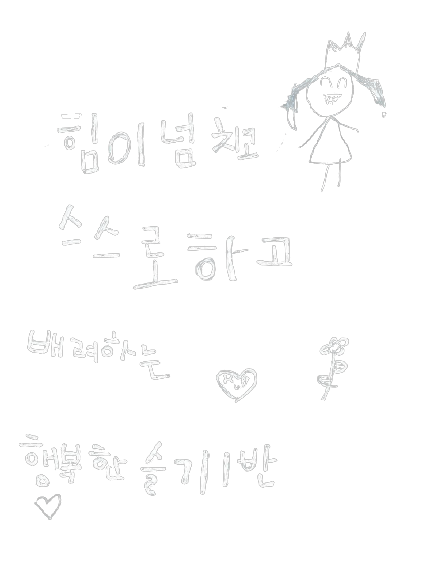 힘이 넘쳐
스스로하고
배려하는
행복한 슬기반